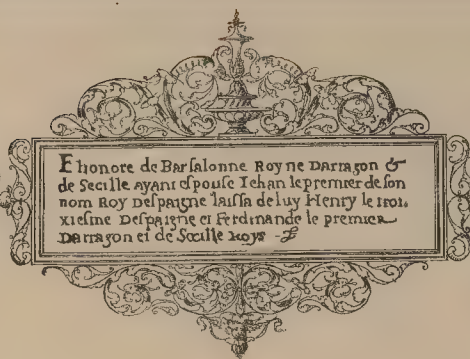 Elionore de Barsalonne Royne Darragon &
de Secille ayant espouse Iehan le premier de son
nom Roy Despaigne laissa de luy Henry le troi,
xiesme Despaigne et Ferdinande le premier
Darragon et de Sœcille Roys